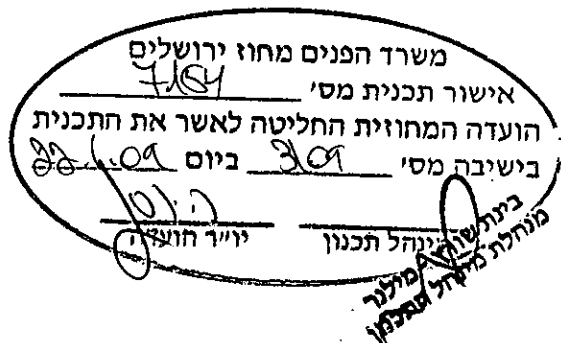 משרד הפנים מחוז ירושלים
אישור תכנית מס'
הועדה המחוזית החליטה לאשר את התכנית
בישיבה מס' 3/09 ביום
מינהל תכנון יו"ר הועדה
בינת שוורץ מילנר
מנהלת מינהל התכנון